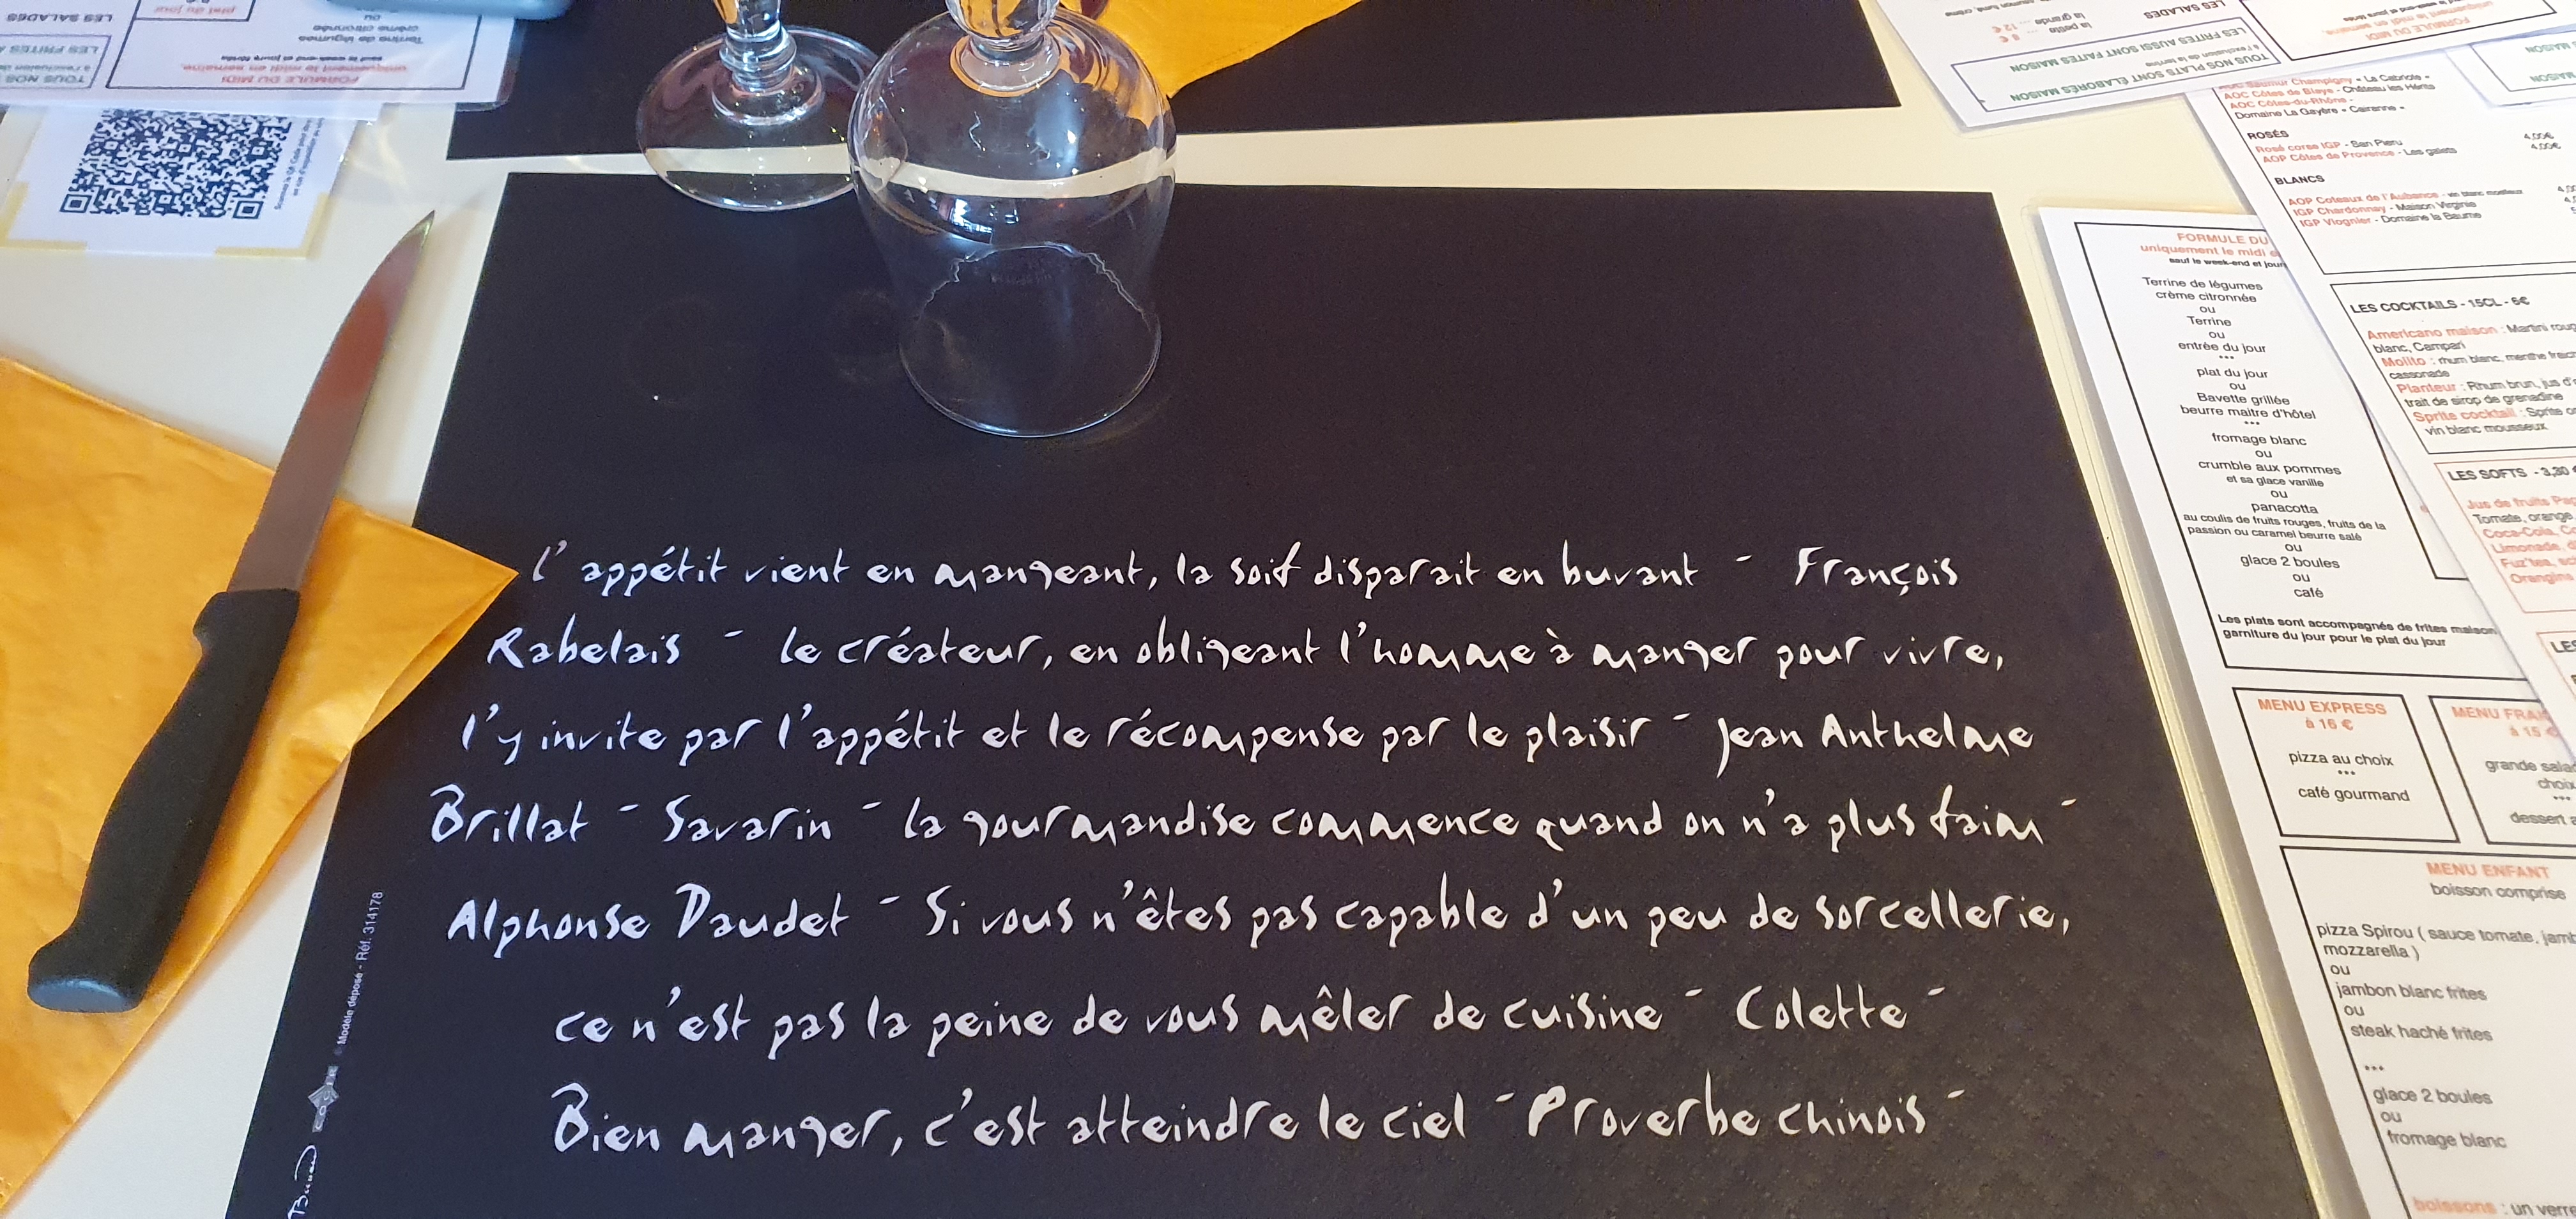 l'appétit vient en mangeant, la soif disparait en buvant - François
Rabelais - le créateur, en obligeant l'homme à manger pour vivre,
l'y invite par l'appétit et le récompense par le plaisir - Jean Anthelme
Brillat - Savarin - la gourmandise commence quand on n'a plus faim -
Alphonse Daudet - Si vous n'êtes pas capable d'un peu de sorcellerie,
ce n'est pas la peine de vous mêler de cuisine - Colette -
Bien manger, c'est atteindre le ciel - Proverbe chinois -
Modèle déposé - Réf. 314178
COGIR
LES SALADES
plat du jour
ou
crème citronnée
Terrine de légumes
sauf le week-end et jours fériés
uniquement le midi en semaine,
FORMULE DU MIDI
LES FRITES
TOUS NOS
LES SALADES
la grande ... 12 €
la petite ... 8 €
LES FRITES AUSSI SONT FAITES MAISON
à l'exclusion de la terrine
TOUS NOS PLATS SONT ÉLABORÉS MAISON
uniquement le midi en semaine,
FORMULE DU MIDI
AOC Saumur Champigny - La Cabriole -
AOC Côtes de Blaye - Château les
AOC Côtes-du-Rhône -
Domaine La Gayère - Cairanne -
ROSÉS
Rosé corse IGP - San Pieru 4,00€
AOP Côtes de Provence - Les galets 4,00€
BLANCS
AOP Coteaux de l'Aubance - vin blanc moelleux
IGP Chardonnay - Maison Virginie
IGP Viognier - Domaine la Baume
LES COCKTAILS - 15CL - 6€
Americano maison : Martini
blanc, Campari
Mojito : rhum blanc, menthe
cassonade
Planteur : Rhum brun, jus
trait de sirop de grenadine
Sprite cocktail : Sprite
vin blanc mousseux
LES SOFTS - 3,30
Jus de fruits
Tomate, orange
Coca-Cola,
Limonade,
FORMULE DU
uniquement le midi
sauf le week-end et
Terrine de légumes
crème citronnée
ou
Terrine
ou
entrée du jour
***
plat du jour
ou
Bavette grillée
beurre maitre d'hôtel
***
fromage blanc
ou
crumble aux pommes
et sa glace vanille
ou
panacotta
au coulis de fruits rouges, fruits de la
passion ou caramel beurre salé
ou
glace 2 boules
ou
café
Les plats sont accompagnés de frites maison
garniture du jour pour le plat du jour
MENU EXPRESS
à 16 €
pizza au choix
***
café gourmand
MENU
à 15 €
grande
choix
***
dessert
MENU ENFANT
boisson comprise
pizza Spirou ( sauce tomate,
mozzarella )
ou
jambon blanc frites
ou
steak haché frites
***
glace 2 boules
ou
fromage blanc
boissons : un